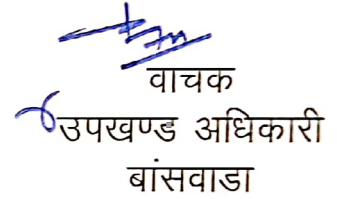 वाचक
उपखण्ड अधिकारी
बांसवाडा